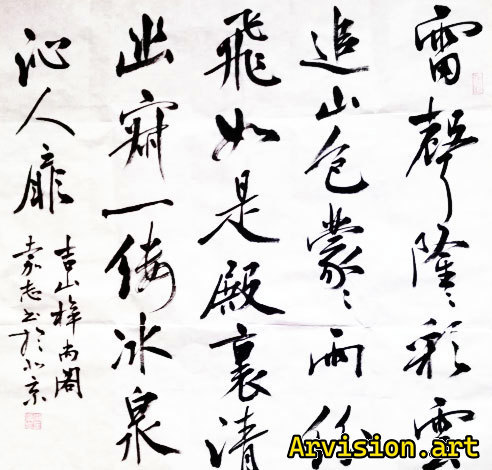 雷聲隆々彩雲
追山色蒙々雨絲
飛如是殿裏清
幽寂一冰泉
沁人扉
吉山尚閣
志书於北京
Arvision.art